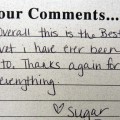 our Comments...
Overall this is the Best
vet i have ever been
to. Thanks again for
everything.
♡ Sugar